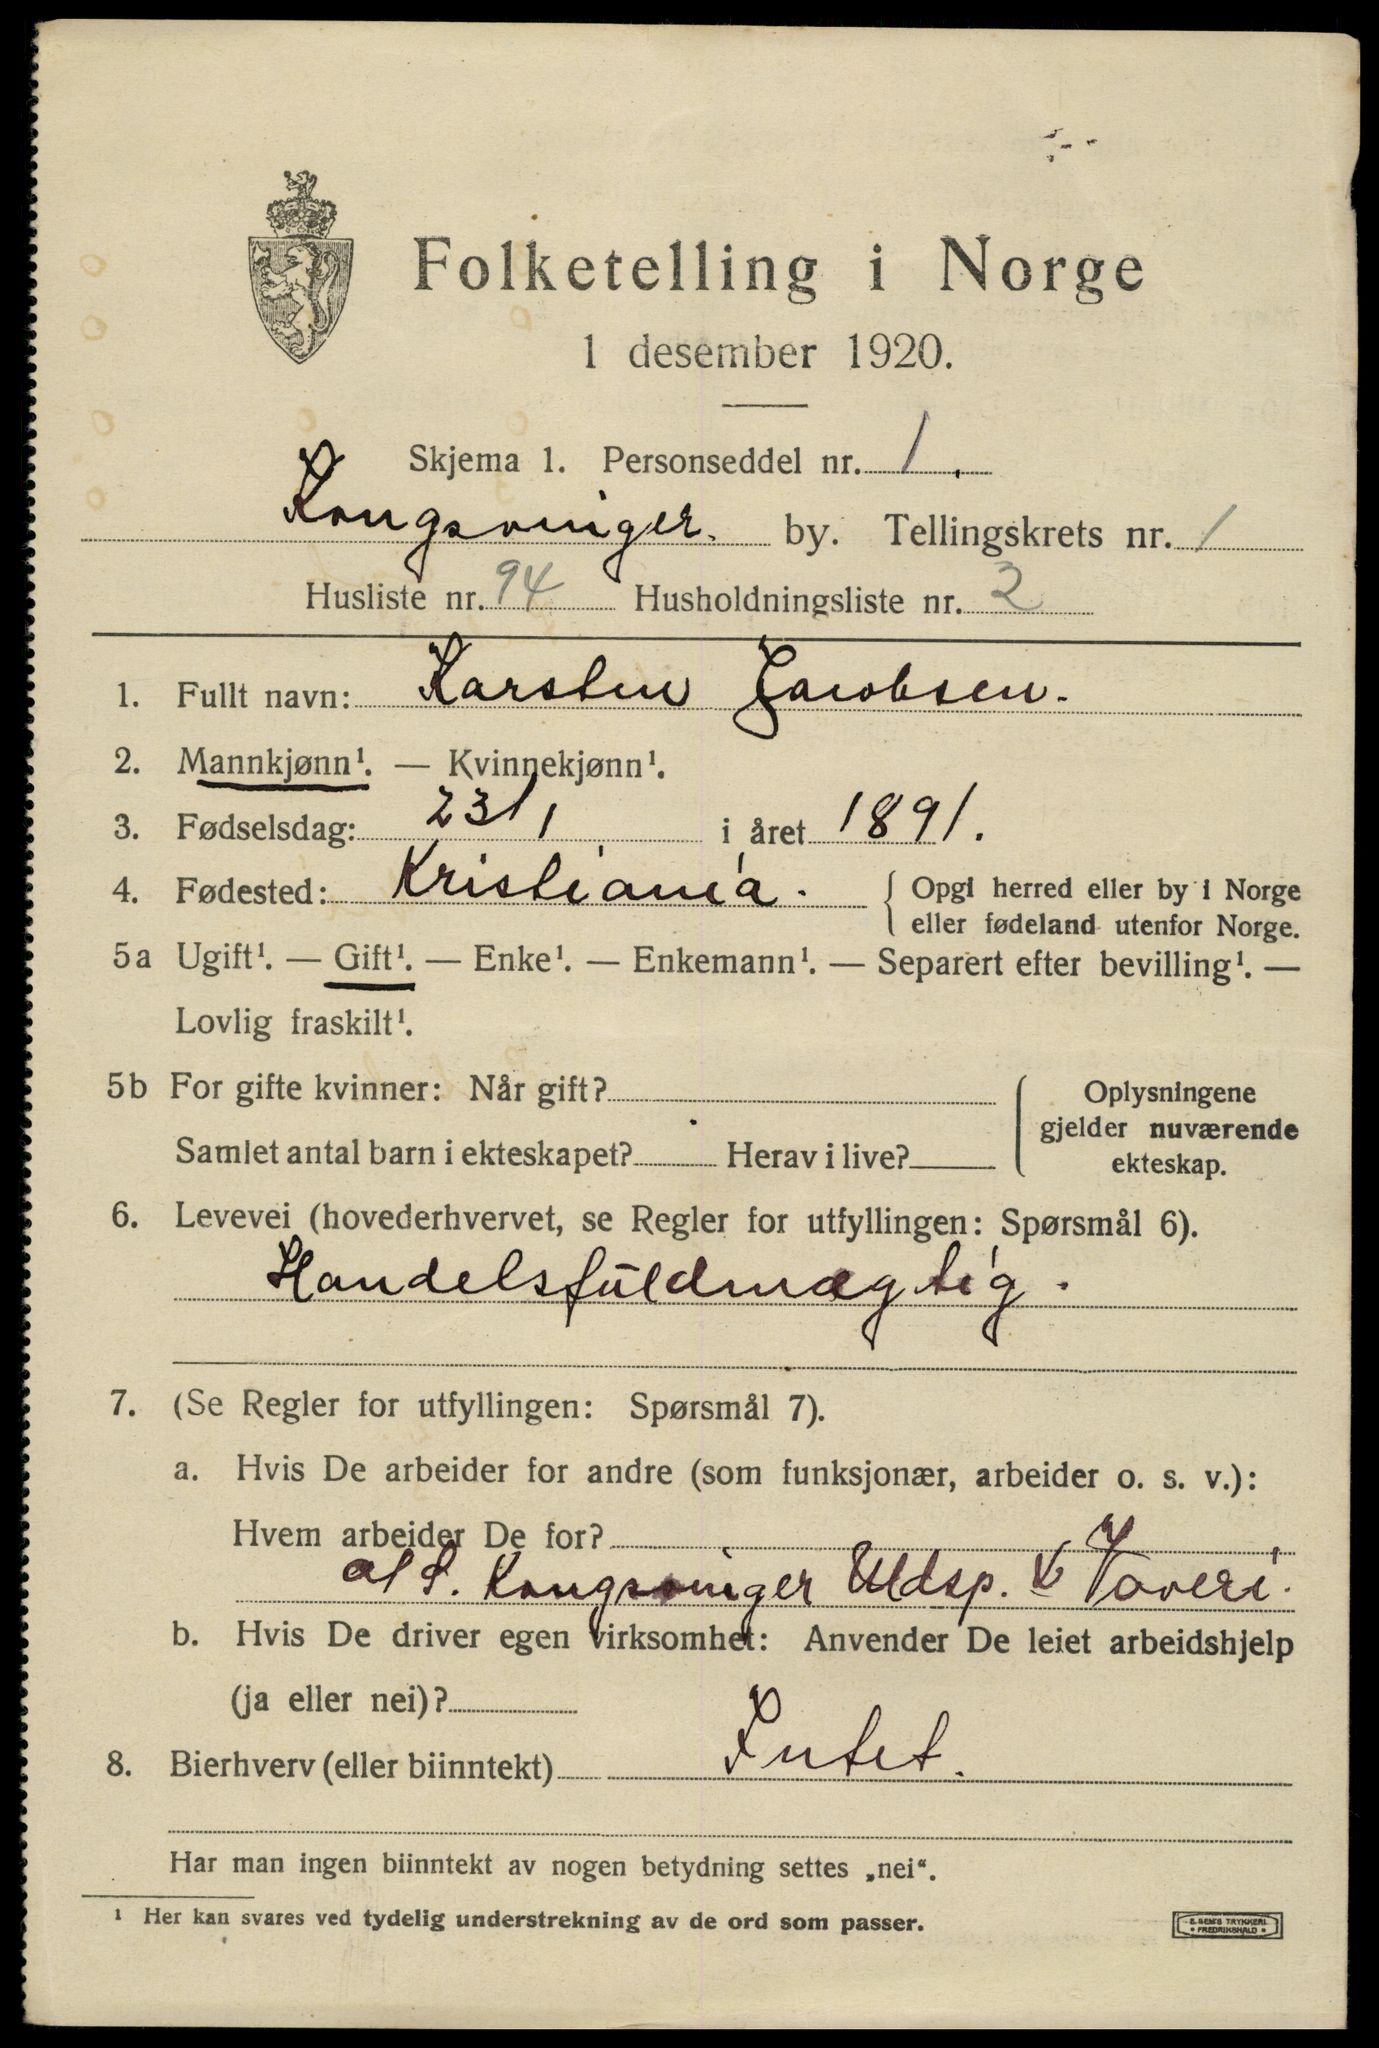 Folketelling i Norge
1 desember 1920.
Skjema 1. Personseddel nr. 1.
Kongsvinger. by. Tellingskrets nr. 1
Husliste nr. 94 Husholdningsliste nr. 2
1. Fullt navn: Karsten Jacobsen.
2. Mannkjønn¹. — Kvinnekjønn¹.
3. Fødselsdag: 23/1 i året 1891.
4. Fødested: Kristiania. { Opgi herred eller by i Norge
eller fødeland utenfor Norge.
5a Ugift¹. — Gift¹. — Enke¹. — Enkemann¹. — Separert efter bevilling¹. —
Lovlig fraskilt¹.
5b For gifte kvinner: Når gift?
Samlet antal barn i ekteskapet? Herav i live?
Oplysningene
gjelder nuværende
ekteskap.
6. Levevei (hovederhvervet, se Regler for utfyllingen: Spørsmål 6).
Handelsfuldmægtig.
7. (Se Regler for utfyllingen: Spørsmål 7).
a. Hvis De arbeider for andre (som funksjonær, arbeider o. s. v.):
Hvem arbeider De for?
A/S. Kongsvinger Uldsp. & Væveri.
b. Hvis De driver egen virksomhet: Anvender De leiet arbeidshjelp
(ja eller nei)?
8. Bierhverv (eller biinntekt) Intet.
Har man ingen biinntekt av nogen betydning settes „nei“.
¹ Her kan svares ved tydelig understrekning av de ord som passer.
E. SEM'S TRYKKERI
• FREDRIKSHALD •